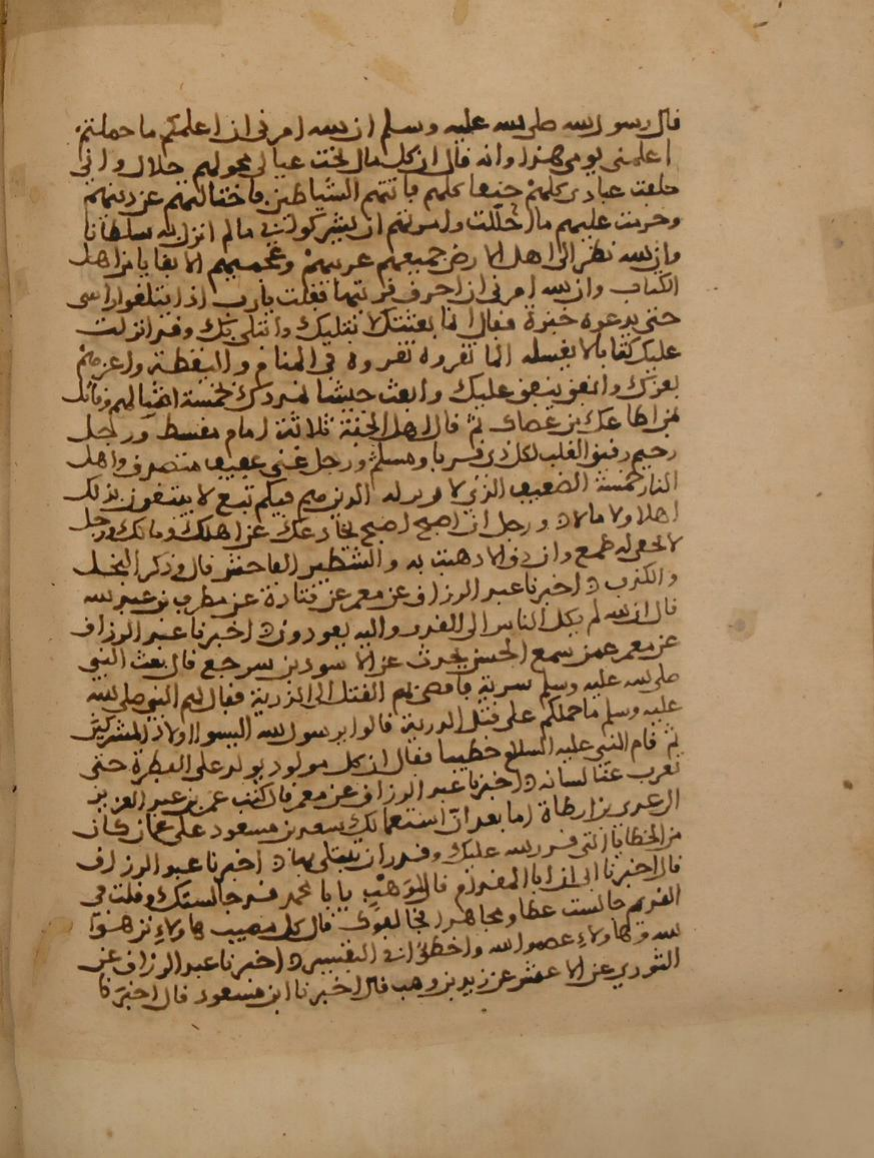 قال رسول الله صلى الله عليه وسلم ان الله امرني ان اعلمكم ما جهلتم
اعلمني يومي هذا وانه قال ان كل مال نحلت عبادي فهو لهم حلال واني
خلقت عبادي كلهم حنفا كلهم فاتتهم الشياطين فاختالتهم عن دينهم
وحرمت عليهم ما احللت وامرتهم ان يشركوا بي ما لم انزل به سلطانا
وان الله نظر الى اهل الارض جميعهم عربيهم وعجميهم الا بقايا من اهل
الكتاب وان الله امرني ان احرق قريشا فقلت يا رب اذا يثلغوا راسي
حتى يدعوه خبزة فقال انما بعثتك لابتليك وابتلي بك وقد انزلت
عليك كتابا لا يغسله الما تقروه في المنام واليقظة واغزهم
نغزك وانفق ينفق عليك وابعث جيشا نمددك بخمسة امثالهم وقاتل
بمن اطاعك من عصاك ثم قال اهل الجنة ثلاثة امام مقسط ورجل
رحيم رقيق القلب لكل ذي قربا ومسلم ورجل غني عفيف متصدق واهل
النار خمسة الضعيف الذي لا زبر له الذين هم فيكم تبع لا يبتغون بذلك
اهلا ولا مالا ورجل ان اصبح اصبح يخادعك عن اهلك ومالك ورجل
لا يخفى له طمع وان دق الا ذهب به والشنظير الفاحش قال وذكر البخل
والكذب اخبرنا عبد الرزاق عن معمر عن قتادة عن مطرف بن عبد الله
قال ان الله لم يكل الناس الى القدر واليه يعودون اخبرنا عبد الرزاق
عن معمر عمن سمع الحسن يحدث عن الاسود بن سريع قال بعث النبي
صلى الله عليه وسلم سرية فافضى بهم القتل الى الذرية فقال لهم النبي صلى الله
عليه وسلم ما حملكم على قتل الذرية قالوا يرسول الله اليسوا اولاد المشركين
ثم قام النبي عليه السلام خطيبا فقال ان كل مولود يولد على الفطرة حتى
يعرب عنه لسانه اخبرنا عبد الرزاق عن معمر قال كتب عمر بن عبد العزيز
الى عدي بن ارطاة اما بعد ان استعمالك سعد بن مسعود على عمان كان
من الخطايا التي قدر الله عليك وقدر ان يبتلى بها اخبرنا عبد الرزاق
قال اخبرنا ابي ان ابا المقدام قال لوهب يا با محمد قد جالستك وقلت في
القدر جالست عطا ومجاهدا فخالفوك قال كل مصيب هاولاء نزهوا
الله وهاولاء عصموا الله واخطوا في التفسير اخبرنا عبد الرزاق عن
الثوري عن الاعمش عن زيد بن وهب قال اخبرنا ابن مسعود قال اخبرنا